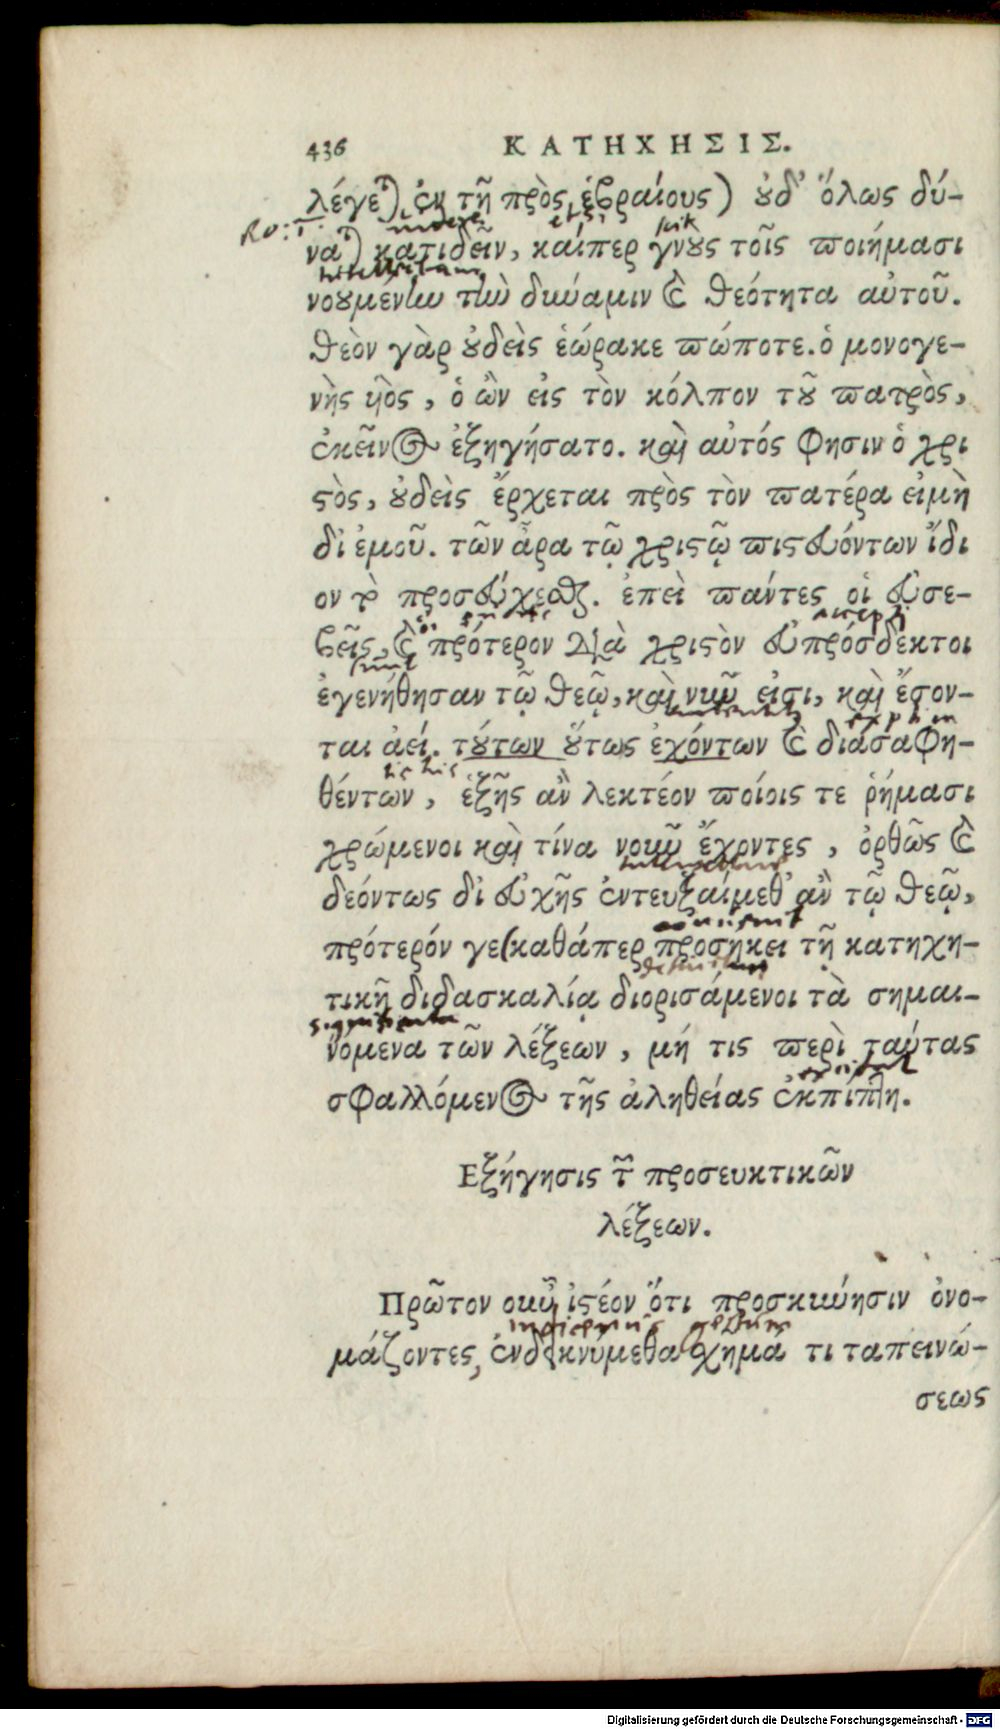 436 ΚΑΤΗΧΗΣΙΣ.
λέγεται ἐν τῇ πρὸς ἑβραίους) οὐδ' ὅλως δύ-
Ro: 1.
ναται κατιδεῖν, καίπερ γνοὺς τοῖς ποιήμασι
νουμένην τὴν δύναμιν καὶ θεότητα αὐτοῦ.
θεὸν γὰρ οὐδεὶς ἑώρακε πώποτε. ὁ μονογε-
νὴς υἱὸς, ὁ ὢν εἰς τὸν κόλπον τοῦ πατρὸς,
ἐκεῖνος ἐξηγήσατο. καὶ αὐτός φησιν ὁ χρι
στὸς, οὐδεὶς ἔρχεται πρὸς τὸν πατέρα εἰμὴ
δι ἐμοῦ. τῶν ἆρα τῷ χριστῷ πιστευόντων ἴδι
ον τὸ προσεύχεσθαι. ἐπεὶ πάντες οἱ εὐσε-
βεῖς, καὶ πρότερον διὰ χριστὸν εὐπρόσδεκτοι
ἐγενήθησαν τῷ θεῷ, καὶ νῦν εἰσι, καὶ ἔσον-
ται ἀεί. τούτων οὕτως ἐχόντων καὶ διασαφη-
his his
θέντων, ἑξῆς ἂν λεκτέον ποίοις τε ῥήμασι
χρώμενοι καὶ τίνα νοῦν ἔχοντες, ὀρθῶς καὶ
δεόντως δι εὐχῆς ἐντευξαίμεθ' ἂν τῷ θεῷ,
πρότερόν γε (καθάπερ προσήκει τῇ κατηχη-
τικῇ διδασκαλίᾳ διορισάμενοι τὰ σημαι-
significata
νόμενα τῶν λέξεων, μή τις περὶ ταύτας
σφαλλόμενος τῆς ἀληθείας ἐκπίπτῃ.
Εξήγησις τῶν προσευκτικῶν
λέξεων.
Πρῶτον οὖν ἰστέον ὅτι προσκύνησιν ὀνο-
μάζοντες, ἐνδεικνύμεθα σχημά τι ταπεινώ-
σεως
Digitalisierung gefördert durch die Deutsche Forschungsgemeinschaft - DFG